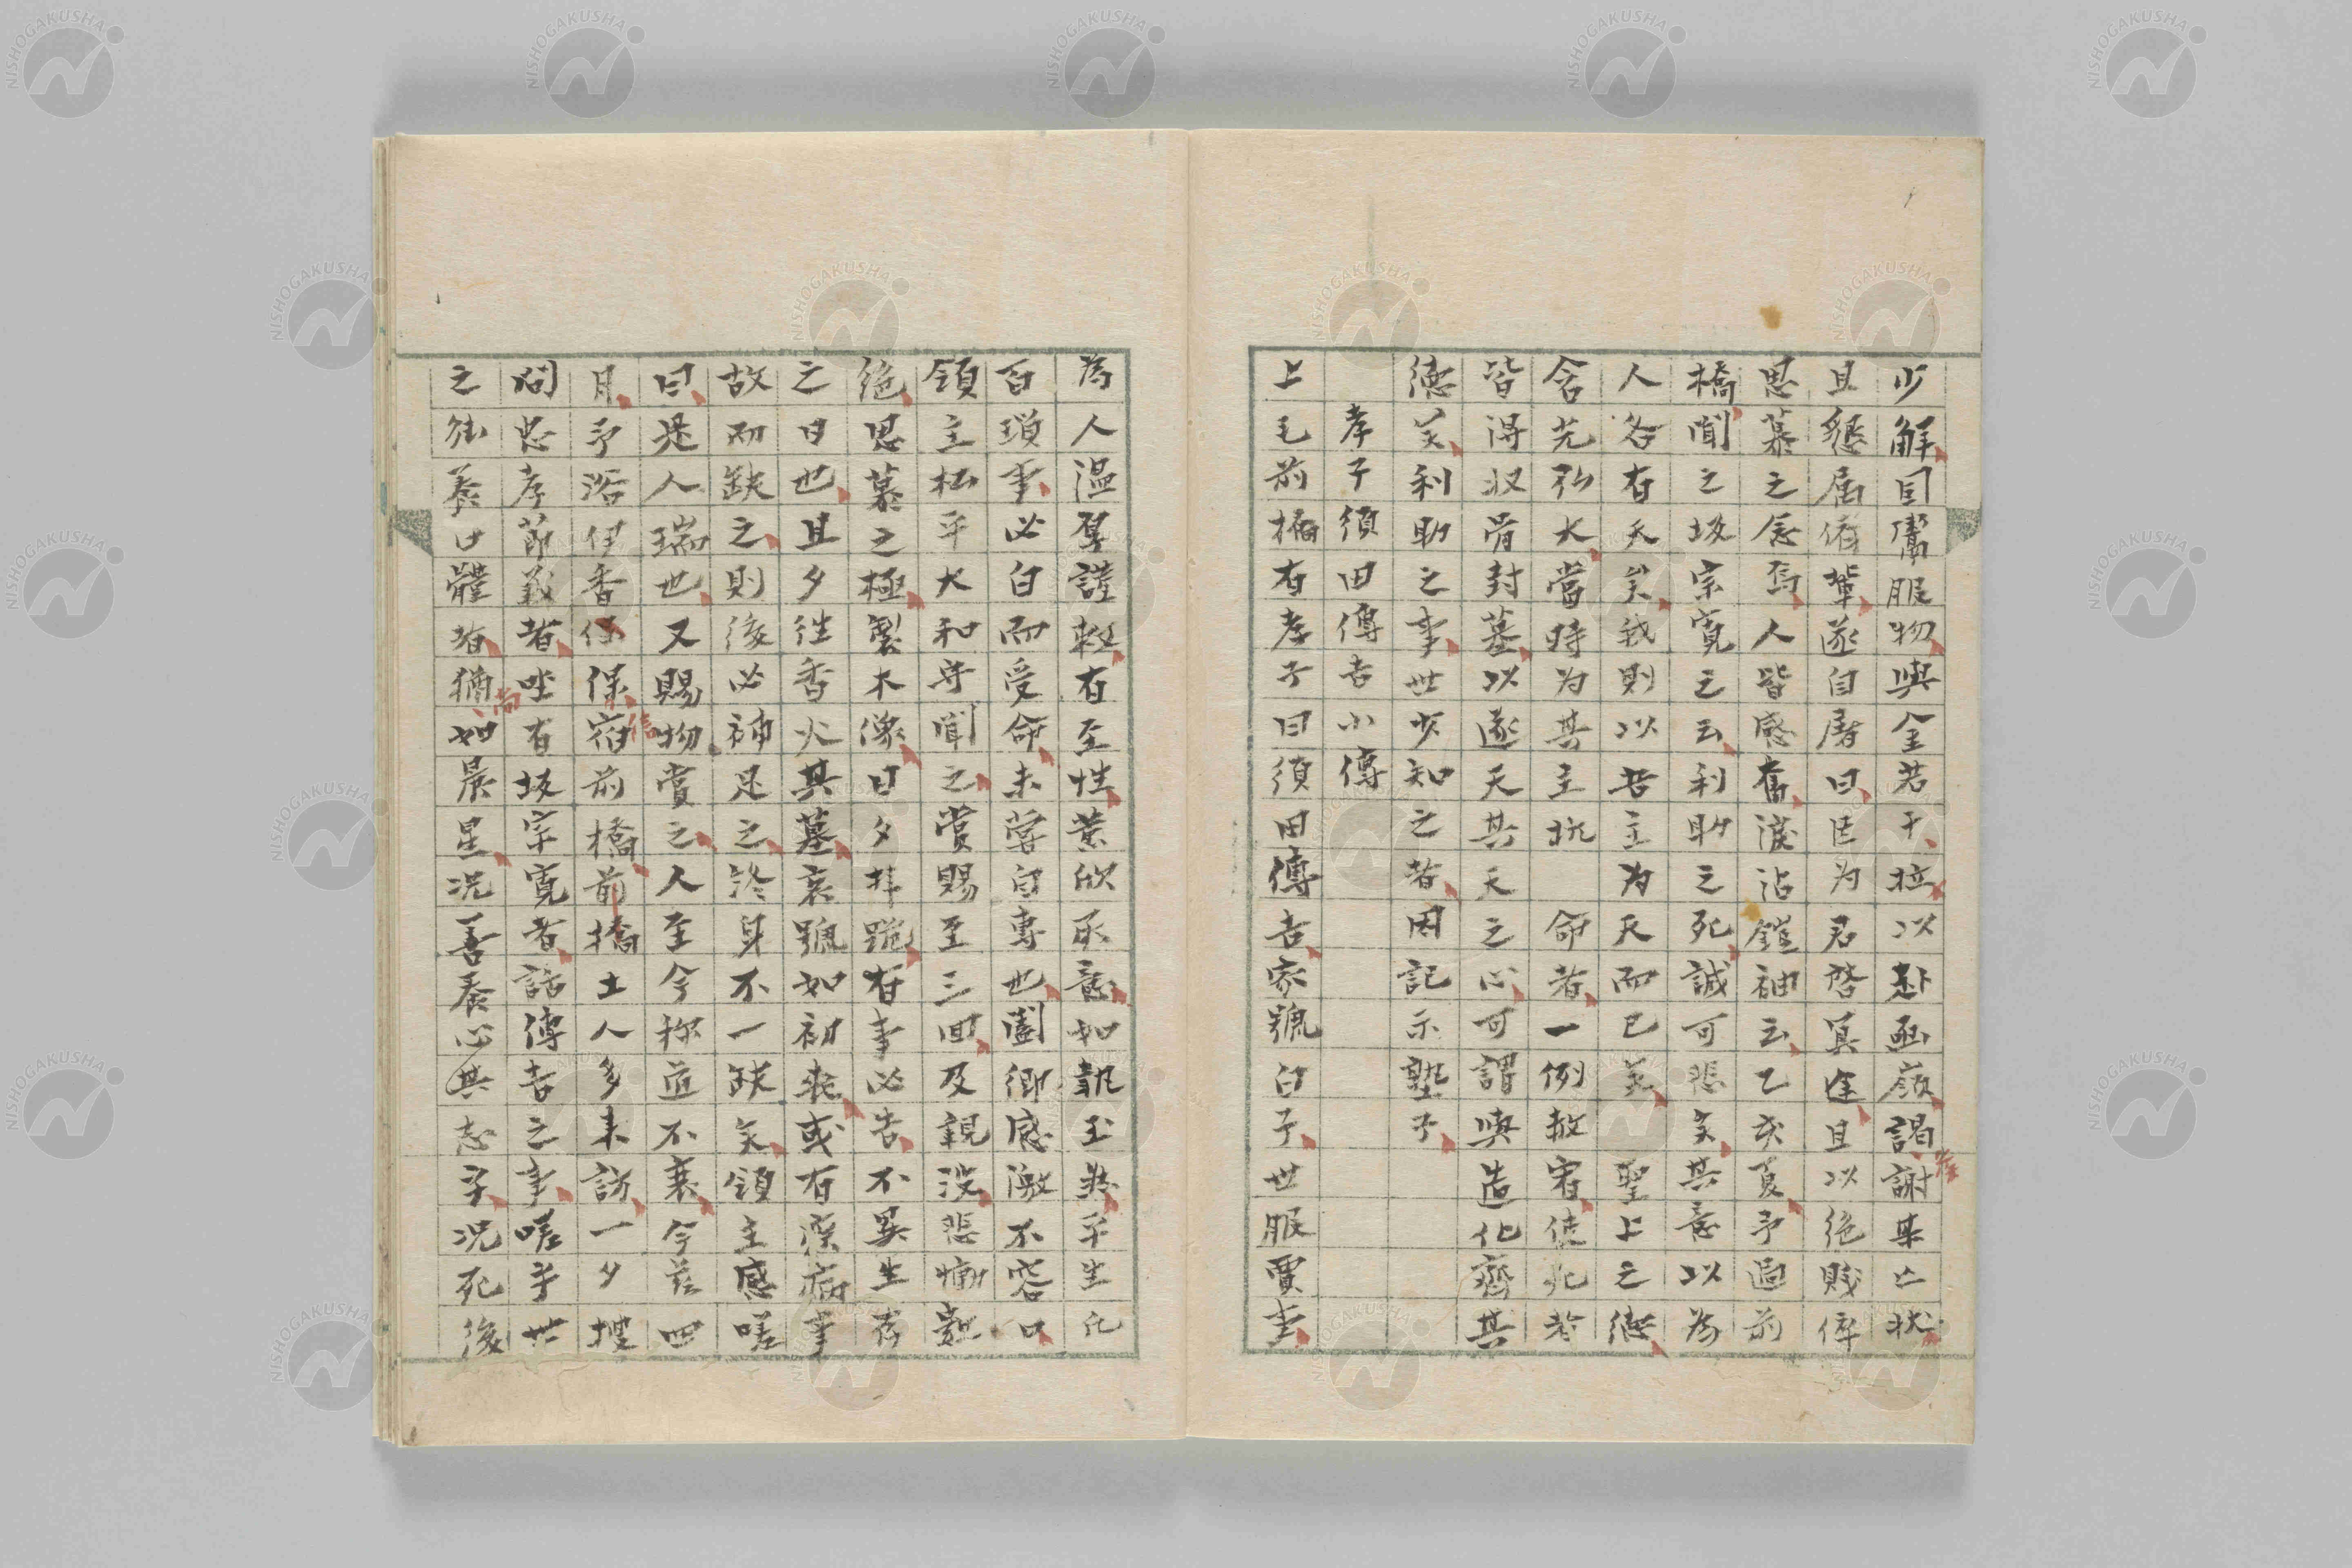 少解因鬻服物與金若干拉以赴函嶺謁謝某亡狀
且懇属脩葦遂自屠曰臣为君啓冥途且以絶賤倅
思慕之念焉人皆感奮淚沾鎧袖云乙亥夏予過前
橋聞之坂宗寛之云利助之死誠可悲矣其意以為
人各有天矣我則以吾主为天而已矣 聖上之德
含光弘大當時为其主抗 命者一例赦宥使死於
皆得収骨封墓以遂天其天之心可謂與造化齊其
德矣利助之事世少知之者因記示塾子
孝子須田傳吉小傳
上毛前橋有孝子曰須田傳吉家號白子世服賈業
為人温厚謹敕有至性業欣承意如執玉然平生凡
百瑣事必白而受命未嘗自專也闔鄉感激不容口
領主松平大和守聞之賞賜至三回及親没悲慟
絶思慕之極製木像日夕拝跪有事必告不異生存
之日也且夕往香火其墓哀號如初喪或有深病事
故而缺之則後必補足之終身不一缺矣領主感嗟
曰是人瑞也又賜物賞之人至今称道不衰今茲四
月予浴伊香保宿前橋前橋土人多来訪一夕搜
問忠孝節義者坐有坂宗寛者話傳吉之事嗟乎世
之能養口體者猶如晨星况善養心其志乎况死後